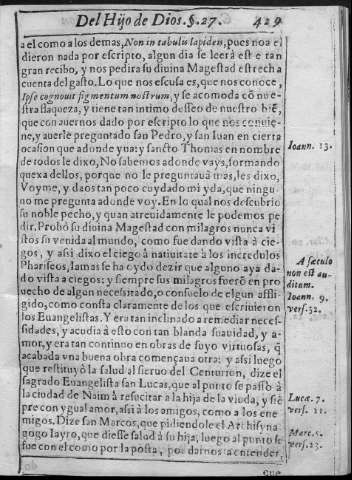 Del Hijo de Dios. §. 27. 429
a el como a los demas, Non in tabulis lapideis, pues no a el
dieron nada por escripto, algun dia se leerà este tan
gran recibo, y nos pedira su diuina Magestad estrecha
cuenta del gasto. Lo que nos escusa es, que nos conoce,
Ipse cognouit figmentum nostrum, y se acomoda cõ nue-
stra flaqueza, y tiene tan intimo desseo de nuestro biẽ,
que con auernos dado por escripto lo que nos conuie-
ne, y auerle preguntado san Pedro, y san Iuan en cierta
ocasion que adonde yua: y sancto Thomas en nombre
de todos le dixo, No sabemos adonde vays, formando
quexa dellos, porque no le preguntauã mas, les dixo,
Voyme, y daos tan poco cuydado mi yda, que ningu-
no me pregunta adonde voy. En lo qual nos descubrio
su noble pecho, y quan atreuidamente le podemos pe-
dir. Probò su diuina Magestad con milagros nunca vi-
stos su venida al mundo, como fue dando vista à cie-
gos, y assi dixo el ciego à natiuitate à los incredulos
Phariseos, Iamas se ha oydo dezir que alguno aya da-
do vista a ciegos: y siempre sus milagros fuerõ en pro
uecho de algun necessitado, o consuelo de algun affli-
gido, como consta claramente de los que escriuieron
los Euangelistas. Y era tan inclinado a remediar neces-
sidades, y acudia à esto con tan blanda suauidad, y a-
mor, y era tan continuo en obras de suyo virtuosas, q̃
acabada vna buena obra començaua otra: y assi luego
que restituyò la salud al sieruo del Centurion, dize el
sagrado Euangelista san Lucas, que al punto se passò à
la ciudad de Naim à resucitar a la hija de la viuda, y siẽ
pre con ygual amor, assi à los amigos, como a los ene-
migos. Dize san Marcos, que pidiendole el Archisyna
gogo Iayro, que diesse salud à su hija, luego al punto se
fue con el como por la posta, por darnos a entender,
que
Ioann. 13.
A sæculo
non est au-
ditum.
Ioann. 9.
vers. 32.
Luca. 7.
vers. 11.
Marc. 5.
vers. 23.